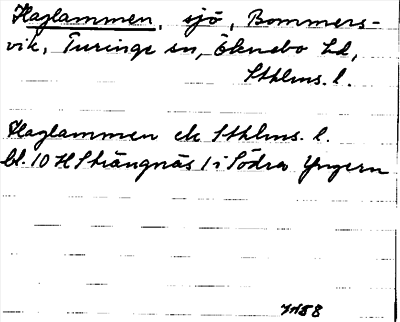 Haglammen, sjö, Bommers-
vik, Turinge sn, Öknebo hd,
Sthlms. l.
Haglammen ek Sthlms. l.
bl. 10 H Strängnäs 1 i Södra Yngern